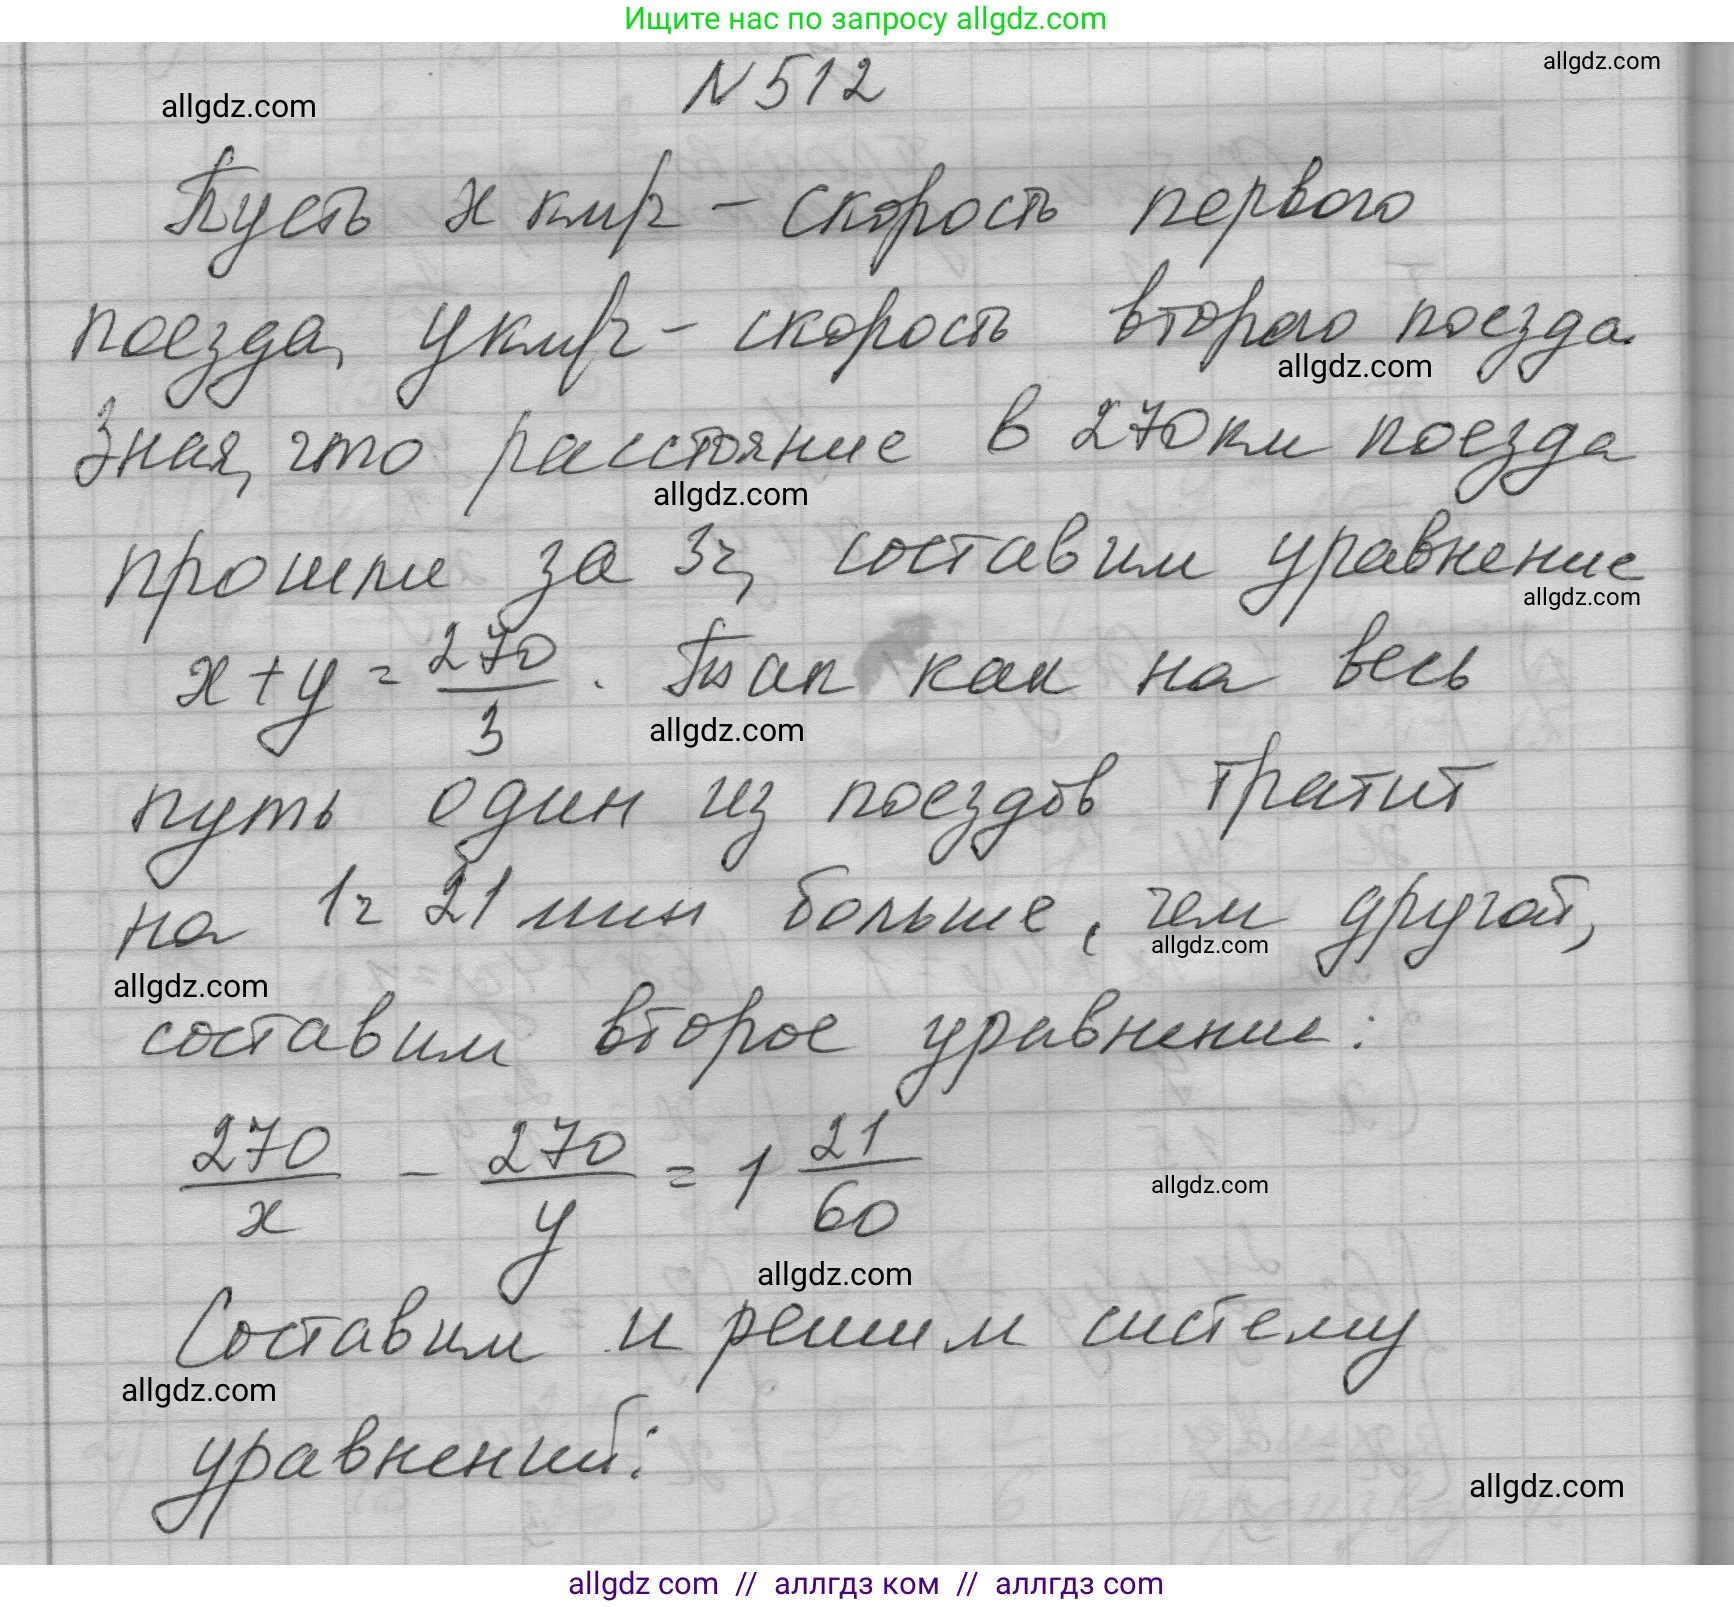 Ищите нас по запросу allgdz.com
allgdz.com
№512
allgdz.com
Пусть x км/ч - скорость первого
поезда, y км/ч - скорость второго поезда.
allgdz.com
Зная, что расстояние в 270 км поезда
allgdz.com
прошли за 3ч, составим уравнение
allgdz.com
x+y = 270/3. Так как на весь
allgdz.com
путь один из поездов тратит
на 1ч 21 мин больше, чем другой,
allgdz.com
allgdz.com
составим второе уравнение:
270/x - 270/y = 1 21/60
allgdz.com
allgdz.com
Составим и решим систему
allgdz.com
уравнений:
allgdz.com
allgdz com // аллгдз ком // аллгдз com